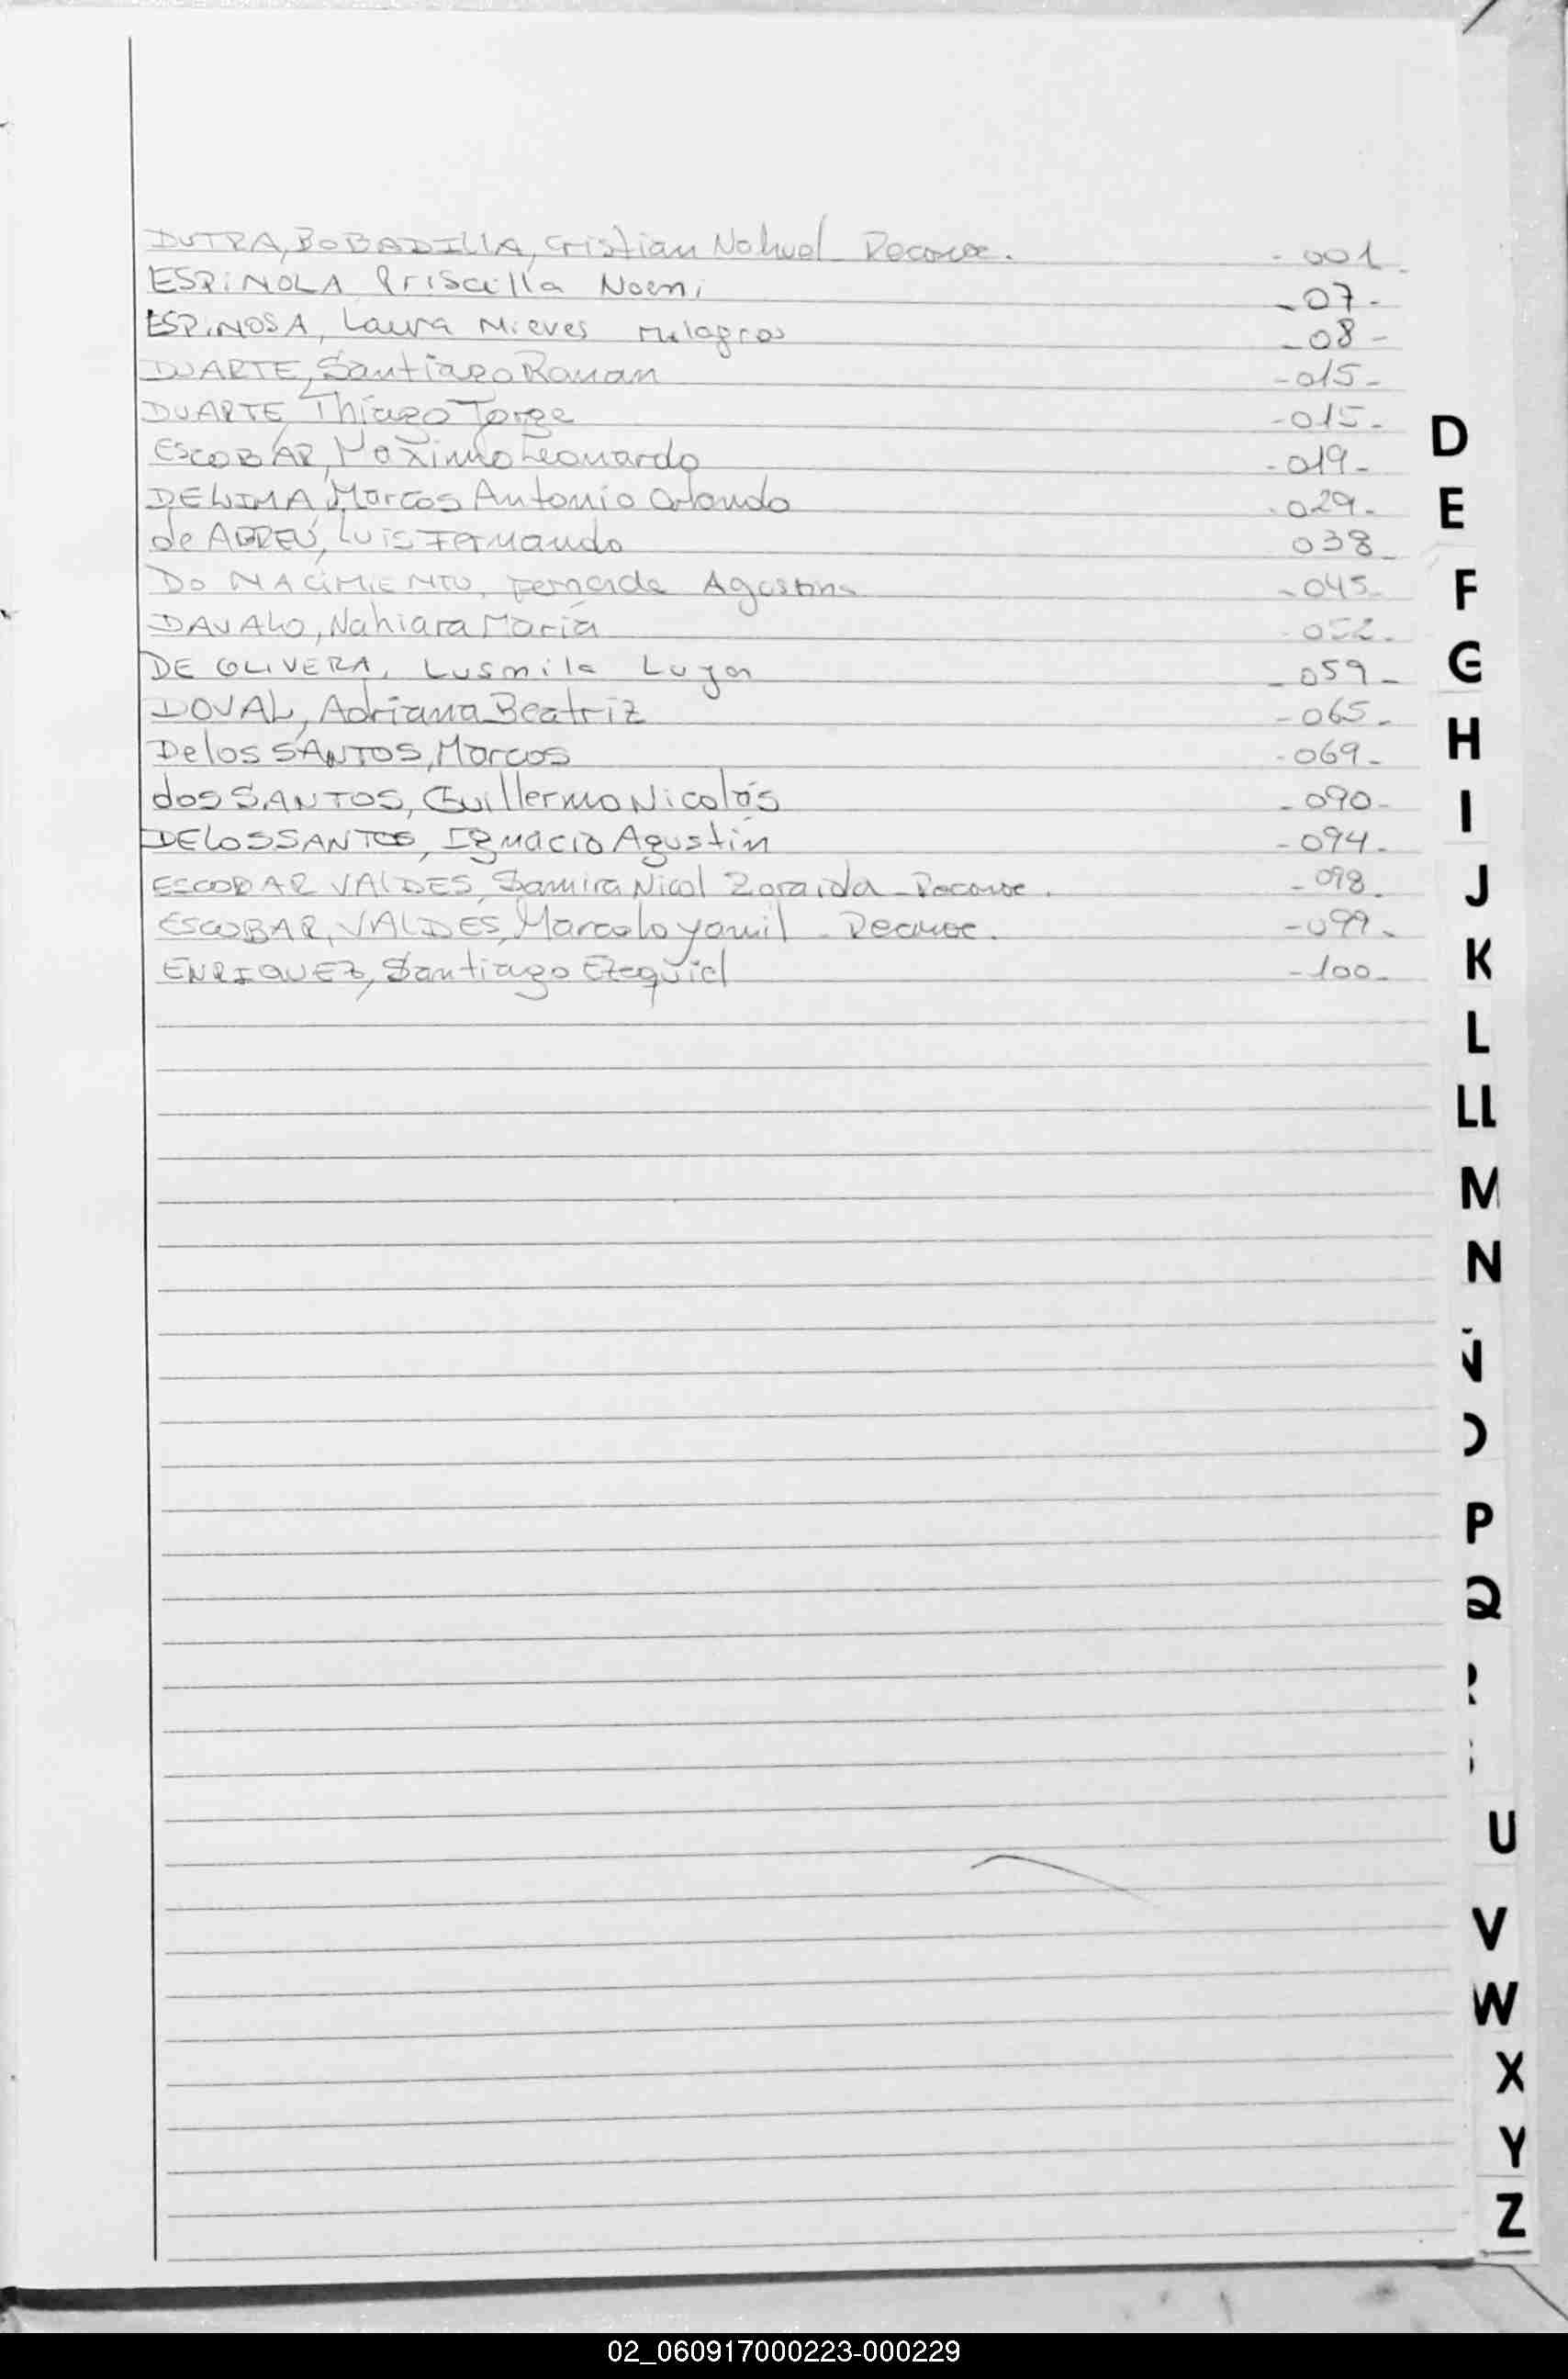 DUTRA, BOBADILLA, Cristian Nahuel Reconoc. - 001.
ESPINOLA Priscilla Noemi - 07 -
ESPINOSA, Laura Nieves Milagros - 08 -
DUARTE, Santiago Roman - 015 -
DUARTE, Thiago Jorge - 015 -
ESCOBAR, Maximo Leonardo - 019 -
DELIMA, Marcos Antonio Orlando - 029 -
de ABREU, Luis Fernando 038 -
Do NACIMIENTO, Fernanda Agostina - 045 -
DAVALO, Nahiara María 052 -
DE OLIVERA, Lusmila Lujan - 059 -
DOVAL, Adriana Beatriz - 065 -
De los SANTOS, Marcos - 069 -
dos SANTOS, Guillermo Nicolás - 090 -
DE LOS SANTOS, Ignacio Agustín - 094 -
ESCOBAR VALDES, Samira Nicol Zoraida - Reconoc. - 098.
ESCOBAR, VALDES, Marcelo Yamil - Reconoc. - 099 -
ENRIQUEZ, Santiago Ezequiel - 100 -
D
E
F
G
H
I
J
K
L
LL
M
N
P
Q
U
V
W
X
Y
Z
02_060917000223-000229